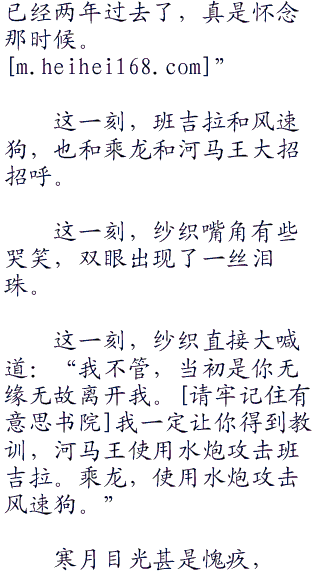 已经两年过去了，真是怀念
那时候。
[m.heihei168.com]”
这一刻，班吉拉和风速
狗，也和乘龙和河马王大招
招呼。
这一刻，纱织嘴角有些
哭笑，双眼出现了一丝泪
珠。
这一刻，纱织直接大喊
道：“我不管，当初是你无
缘无故离开我。[请牢记住有
意思书院]我一定让你得到教
训，河马王使用水炮攻击班
吉拉。乘龙，使用水炮攻击
风速狗。”
寒月目光甚是愧疚，